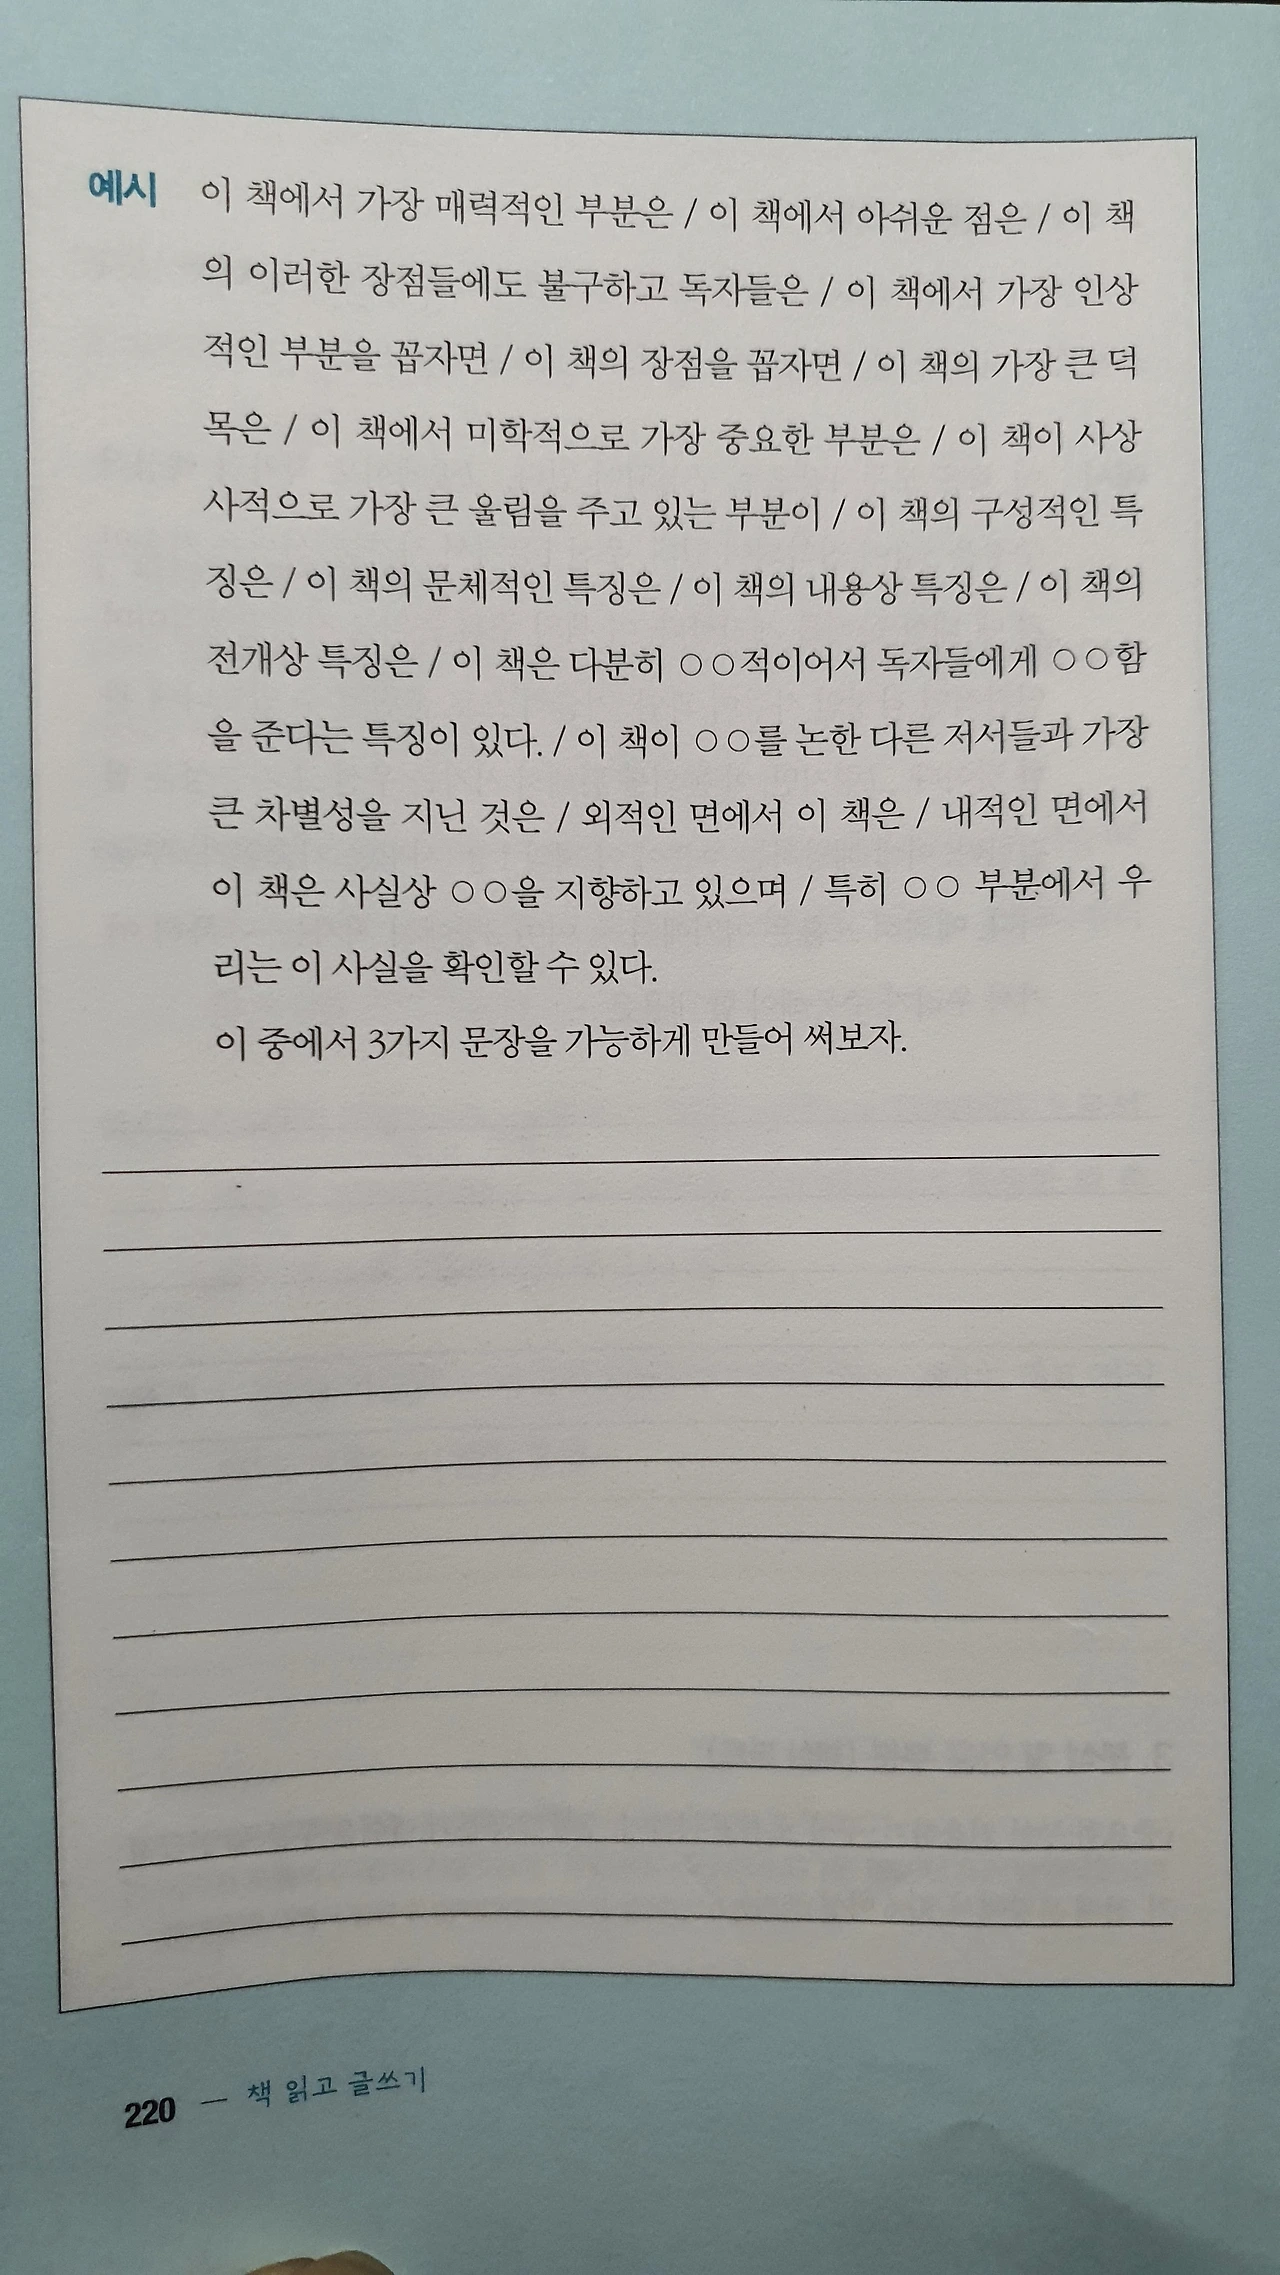 예시 이 책에서 가장 매력적인 부분은 / 이 책에서 아쉬운 점은 / 이 책
의 이러한 장점들에도 불구하고 독자들은 / 이 책에서 가장 인상
적인 부분을 꼽자면 / 이 책의 장점을 꼽자면 / 이 책의 가장 큰 덕
목은 / 이 책에서 미학적으로 가장 중요한 부분은 / 이 책이 사상
사적으로 가장 큰 울림을 주고 있는 부분이 / 이 책의 구성적인 특
징은 / 이 책의 문체적인 특징은 / 이 책의 내용상 특징은 / 이 책의
전개상 특징은 / 이 책은 다분히 ○○적이어서 독자들에게 ○○함
을 준다는 특징이 있다. / 이 책이 ○○를 논한 다른 저서들과 가장
큰 차별성을 지닌 것은 / 외적인 면에서 이 책은 / 내적인 면에서
이 책은 사실상 ○○을 지향하고 있으며 / 특히 ○○ 부분에서 우
리는 이 사실을 확인할 수 있다.
이 중에서 3가지 문장을 가능하게 만들어 써보자.
220 — 책 읽고 글쓰기